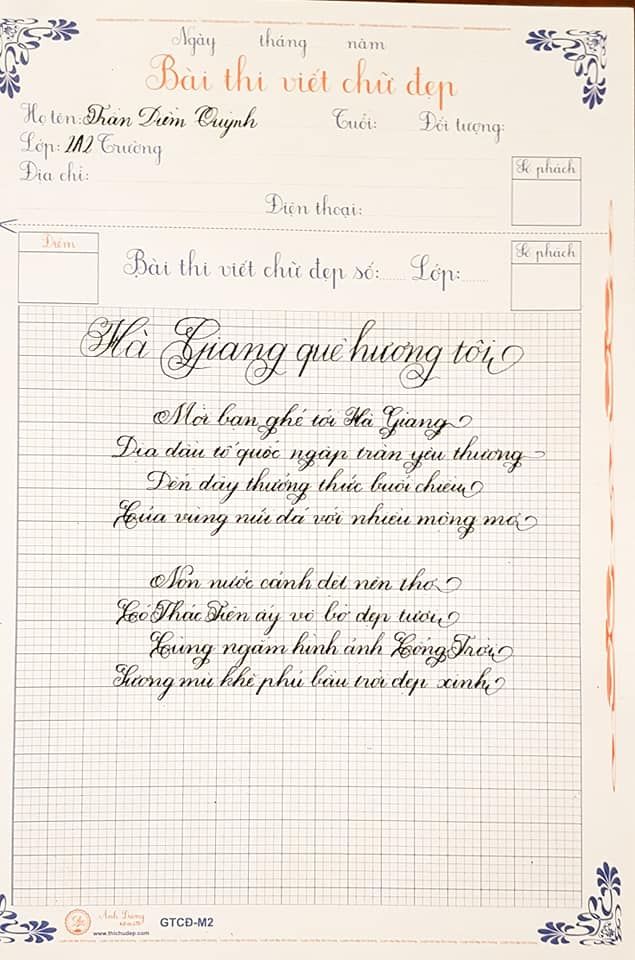 Ngày tháng năm
Bài thi viết chữ đẹp
Họ tên: Trần Diễm Quỳnh Tuổi: Đối tượng:
Lớp: 2A2 Trường
Địa chỉ:
Số phách
Điện thoại:
Điểm
Số phách
Bài thi viết chữ đẹp số:...... Lớp:......
Hà Giang quê hương tôi
Mời bạn ghé tới Hà Giang
Địa đầu tổ quốc ngập tràn yêu thương
Đến đây thưởng thức buổi chiều
Của vùng núi đá với nhiều mộng mơ
Non nước cảnh dệt nên thơ
Có Thác Tiên ấy vô bờ đẹp tươi
Cùng ngắm hình ảnh Cổng Trời
Sương mù khẽ phủ bầu trời đẹp xinh
Ánh Dương
www.thichudep.com
GTCĐ-M2